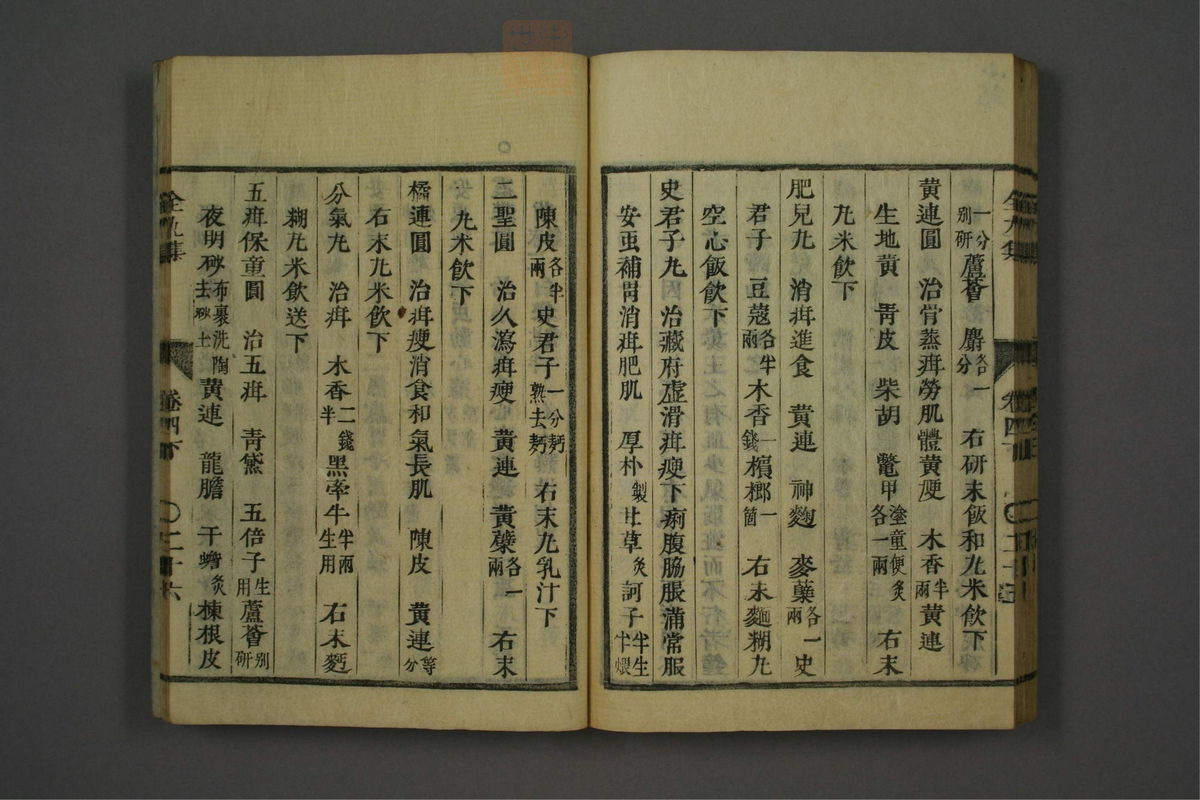 一分別研蘆薈 麝各一分 右研末飯和丸米飲下
黃連圓 治骨蒸疳勞肌體黃瘦 木香半兩黃連
生地黃 靑皮 柴胡 鼈甲塗童便炙各一兩 右末
丸米飲下
肥兒丸 消疳進食 黃連 神麴 麥蘗各一兩史
君子 豆蔻各半兩木香一錢檳榔一箇 右末麵糊丸
空心飯飲下
史君子丸 治藏府虛滑疳瘦下痢腹脇脹滿常服
安䖝補胃消疳肥肌 厚朴製甘草炙訶子半生半煨
陳皮各半兩史君子一分麪熟去麪 右末丸乳汁下
三聖圓 治久瀉疳瘦 黃連 黃蘗各一兩 右末
丸米飲下
橘連圓 治疳瘦消食和氣長肌 陳皮 黃連等分
右末丸米飲下
分氣丸 治疳 木香二錢半黑牽牛半兩生用 右末麪
糊丸米飲送下
五疳保童圓 治五疳 靑黛 五倍子生用蘆薈別研
夜明砂布裹洗陶去砂土黃連 龍膽 干蟾炙楝根皮
全九集
卷四下
二十六